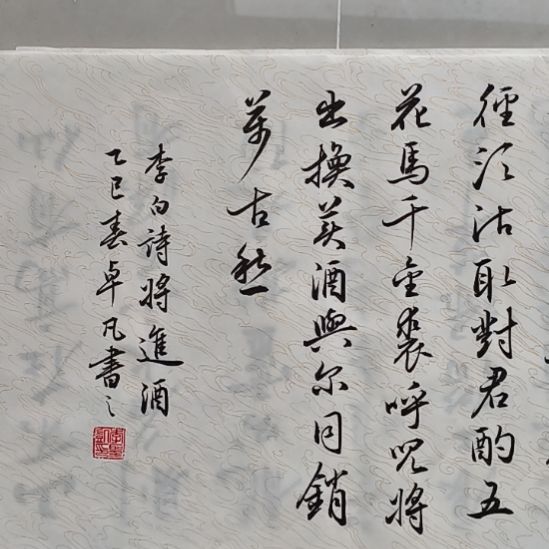 徑須沽取對君酌五
花馬千金裘呼兒將
出換美酒與尔同銷
萬古愁
李白詩將進酒
乙巳春卓凡書之